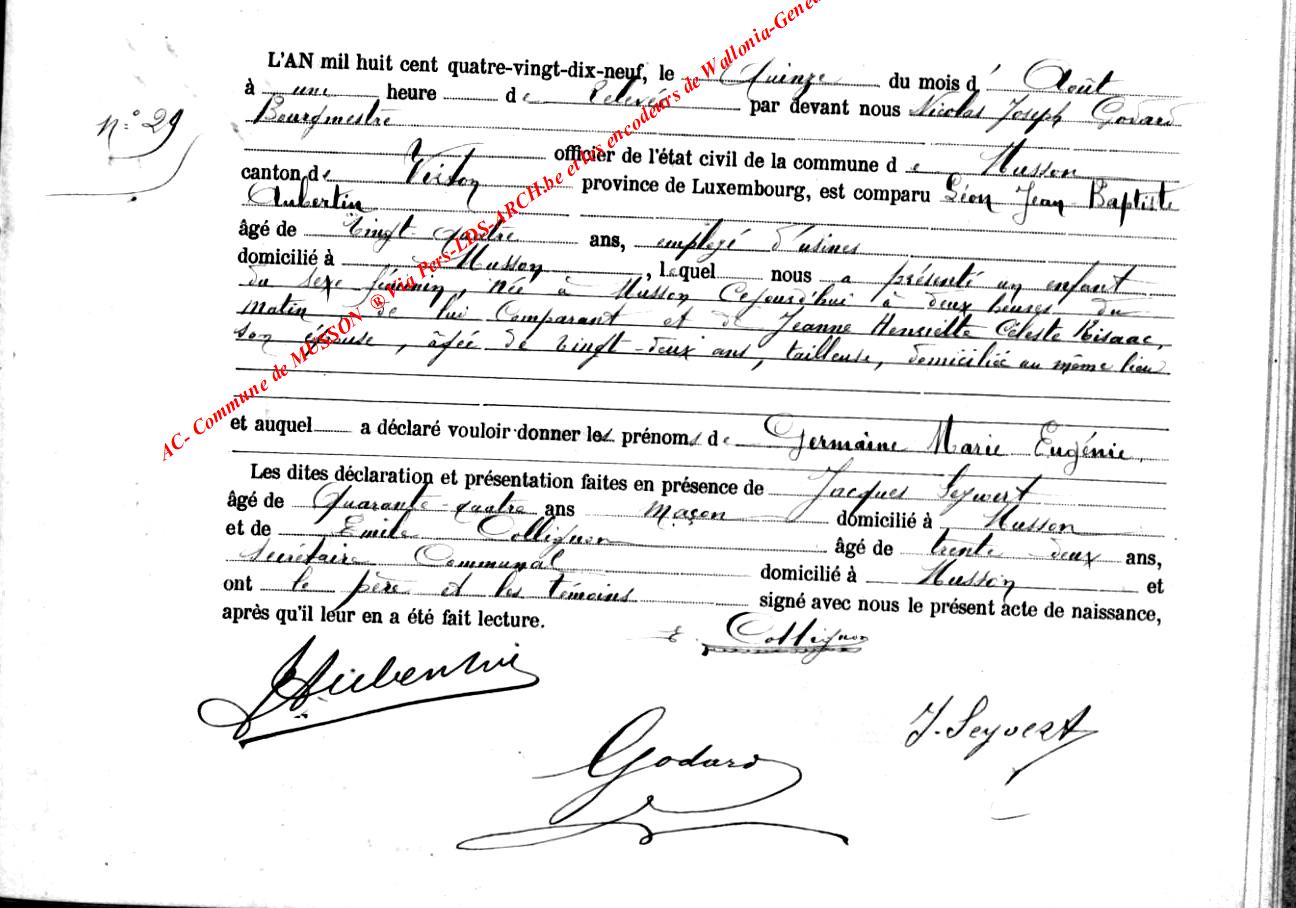 AC- Commune de MUSSON ® Via Pers-LDS-ARCH.be et les encodeurs de Wallonia-Genea
L'AN mil huit cent quatre-vingt-dix-neuf, le Quinze du mois d' Août
n° 29
à une heure de relevée par devant nous Nicolas Joseph Godard
Bourgmestre
officier de l'état civil de la commune de Musson
canton de Virton province de Luxembourg, est comparu Léon Jean Baptiste
Aubertin
âgé de Vingt-quatre ans, employé d'usines
domicilié à Musson, lequel nous a présenté un enfant
du sexe féminin, née à Musson Cejourd'hui à deux heures du
matin de lui Comparant et de Jeanne Henriette Céleste Risaac,
son épouse, âgée de vingt-deux ans, tailleuse, domiciliée au même lieu
et auquel a déclaré vouloir donner les prénoms de Germaine Marie Eugénie,
Les dites déclaration et présentation faites en présence de Jacques Seywert
âgé de Quarante-quatre ans Maçon domicilié à Musson
et de Emile Collignon âgé de trente deux ans,
Secrétaire Communal domicilié à Musson et
ont le père et les témoins signé avec nous le présent acte de naissance,
après qu'il leur en a été fait lecture.
E. Collignon
Aubertin
J. Seyvert
Godard